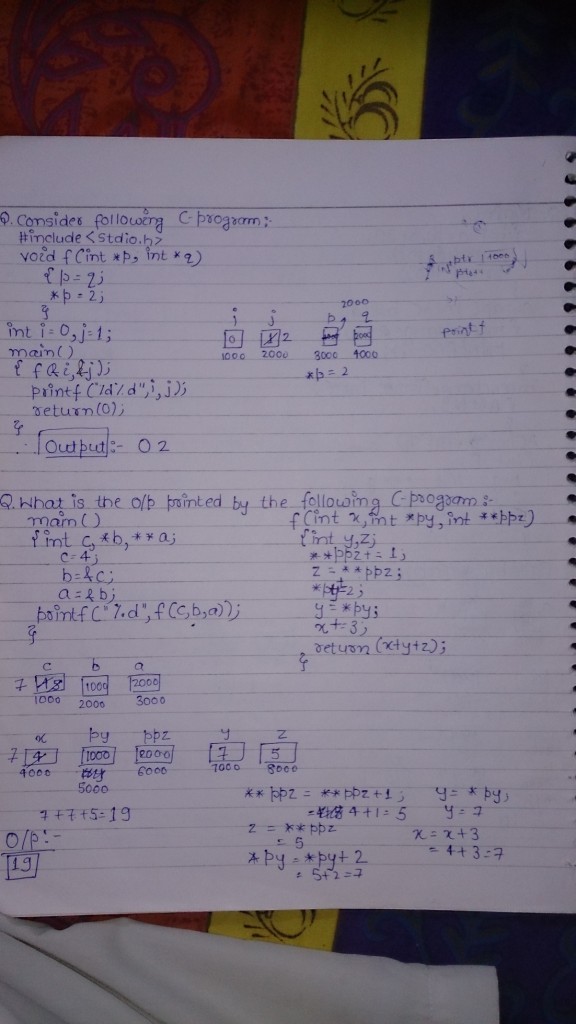 Q. Consider following C-program:-
#include <stdio.h>
void f(int *p, int *q)
{ p = q;
*p = 2;
}
int i=0, j=1;
main()
{ f(&i, &j);
printf("%d%d", i, j);
return(0);
}
Output:- 0 2
i j p 2000 q
0 1 2
1000 2000 3000 4000
*p = 2
printf
Q. What is the o/p printed by the following C-program:-
main()
{ int c, *b, **a;
c=4;
b=&c;
a=&b;
printf("%d", f(c,b,a));
}
f(int x, int *py, int **ppz)
{ int y,z;
**ppz+=1;
z=**ppz;
*py+=2;
y=*py;
x+=3;
return (x+y+z);
}
c b a
7 1000 2000
1000 2000 3000
x py ppz y z
7 4 1000 2000 7 5
4000 5000 6000 7000 8000
7+7+5=19
O/p:-
19
**ppz = **ppz+1;
4+1=5
z = **ppz
= 5
*py = *py+2
= 5+2=7
y= *py;
y=7
x=x+3
= 4+3=7